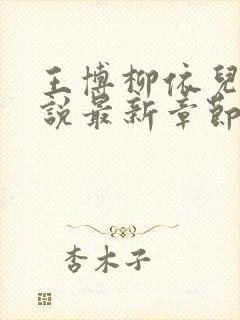 王博柳依兒
說最新章節
杏木子